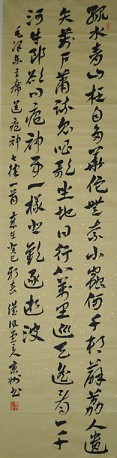 绿水青山枉自多華佗無奈小蟲何千村薜荔人遺
矢萬戶蕭疏鬼唱歌坐地日行八萬里巡天遙看一千
河牛郎欲问瘟神事一樣悲歡逐逝波
毛澤东主席送瘟神七律一首